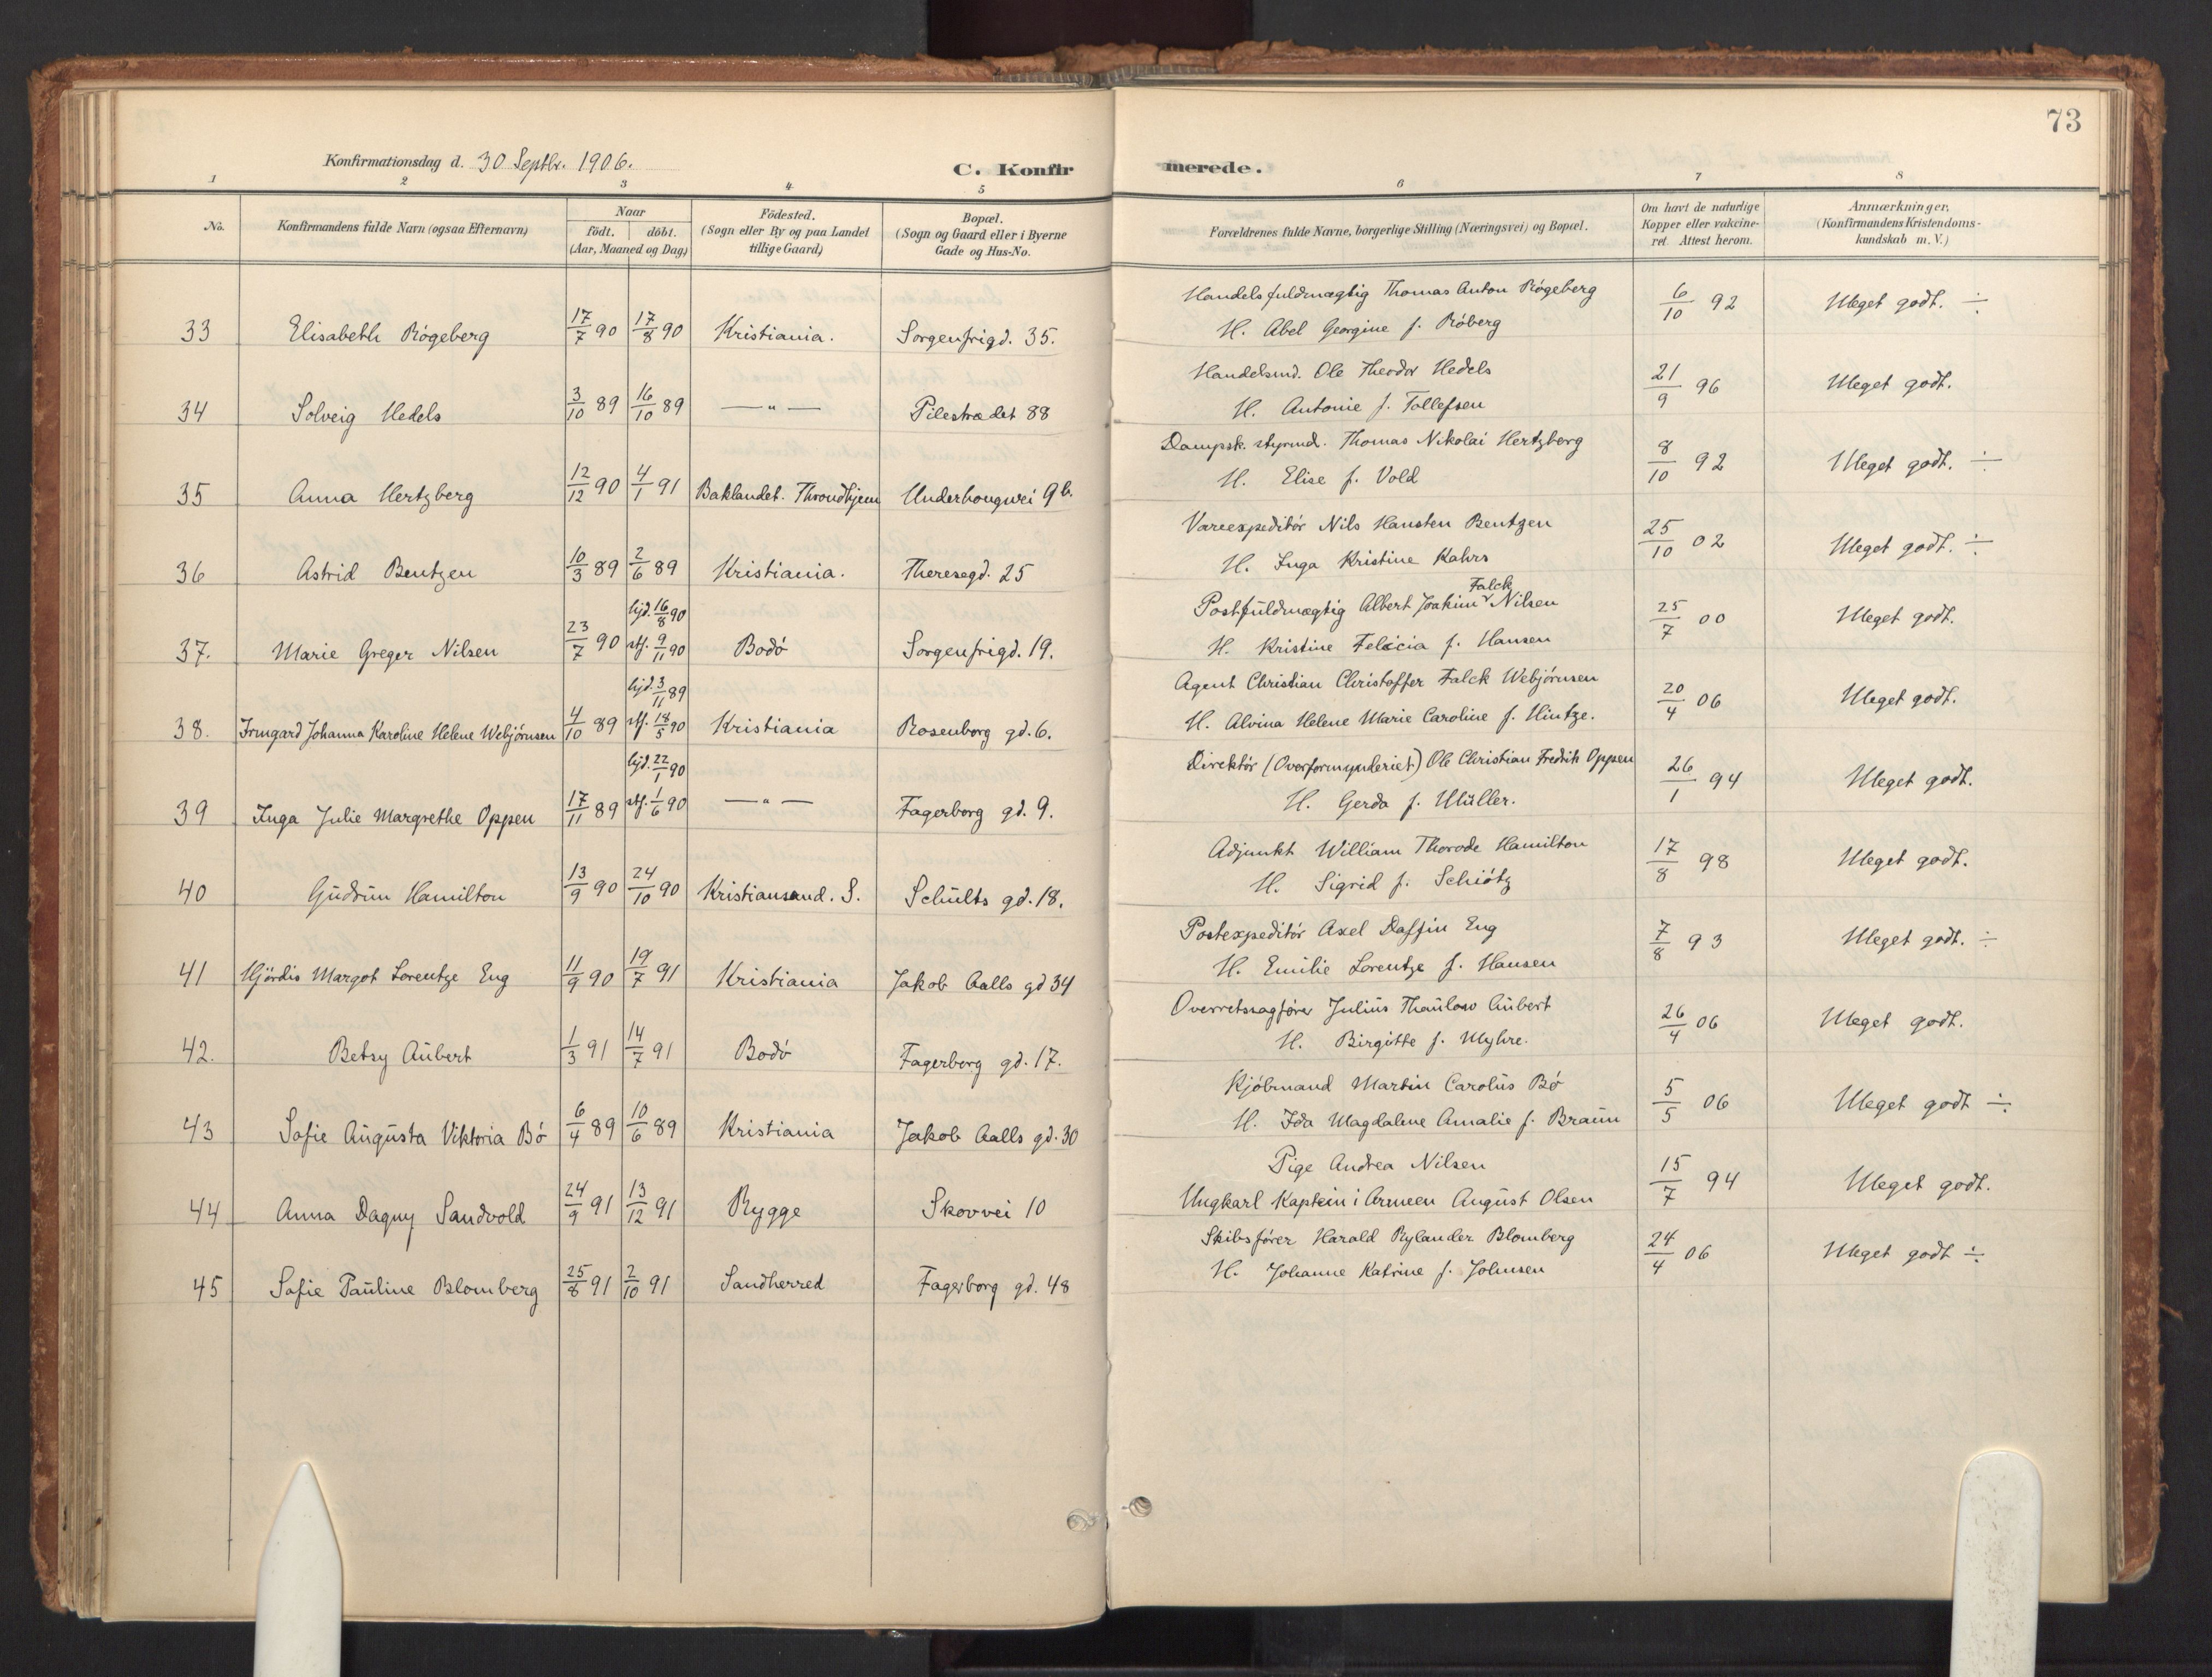 73
Konfirmationsdag d. 30 Septbr. 1906.
C. Konfirmerede.
1 2 3 4 5 6 7 8
No.
Konfirmandens fulde Navn (ogsaa Efternavn)
Naar
født. døbt.
(Aar, Maaned og Dag)
Fødested.
(Sogn eller By og paa Landet
tillige Gaard)
Bopæl.
(Sogn og Gaard eller i Byerne
Gade og Hus-No.
Forældrenes fulde Navne, borgerlige Stilling (Næringsvei) og Bopæl.
Om havt de naturlige
Kopper eller vakcine-
ret. Attest herom.
Anmærkninger,
(Konfirmandens Kristendoms-
kundskab m. V.)
33 Elisabeth Røgeberg 17/7 90 17/8 90 Kristiania. Sorgenfrigd. 35.
Handelsfuldmægtig Thomas Anton Røgeberg
H. Abel Georgine f. Røberg
6/10 92 Meget godt. ÷
34 Solveig Hedels 3/10 89 16/10 89 —"— Pilestrædet 88
Handelsmd. Ole Theodor Hedels
H. Antonie f. Tollefsen
21/9 96 Meget godt.
35 Anna Hertzberg 12/12 90 4/1 91 Baklandet. Throndhjem Underhougsvei 9b.
Dampsk. styrmd. Thomas Nikolai Hertzberg
H. Elise f. Vold
8/10 92 Meget godt. ÷
36 Astrid Bentzen 10/3 89 2/6 89 Kristiania. Theresegd. 25
Vareexpeditør Nils Hansten Bentzen
H. Inga Kristine Kahrs
25/10 02 Meget godt. ÷
37. Marie Greger Nilsen 23/7 90 hjd. 16/8 90 stf. 9/11 90 Bodø Sorgenfrigd. 19.
Postfuldmægtig Albert Joakim Falck Nilsen
H. Kristine Felicia f. Hansen
25/7 00 Meget godt.
38. Irmgard Johanna Karoline Helene Webjørnsen 4/10 89 hjd. 3/11 89 stf. 18/5 90 Kristiania Rosenborg gd. 6.
Agent Christian Christoffer Falck Webjørnsen
H. Alvina Helene Marie Caroline f. Hintze.
20/4 06 Meget godt.
39 Inga Julie Margrethe Oppen 17/11 89 hjd. 22/1 90 stf. 1/6 90 —"— Fagerborg gd. 9.
Direktør (Overformynderiet) Ole Christian Fredrik Oppen
H. Gerda f. Müller.
26/1 94 Meget godt.
40 Gudrun Hamilton 13/9 90 24/10 90 Kristiansand. S. Schults gd. 18.
Adjunkt William Thorode Hamilton
H. Sigrid f. Schiøtz
17/8 98 Meget godt.
41 Hjørdis Margot Lorentze Eng 11/9 90 19/7 91 Kristiania Jakob Aalls gd 34
Postexpeditør Axel Daffin Eng
H. Emilie Lorentze f. Hansen
7/8 93 Meget godt. ÷
42. Betsy Aubert 1/3 91 14/7 91 Bodø Fagerborg gd. 17.
Overretssagfører Julius Thaulow Aubert
H. Birgitte f. Myhre.
26/4 06 Meget godt.
43 Sofie Augusta Viktoria Bø 6/4 89 10/6 89 Kristiania Jakob Aalls gd. 30
Kjøbmand Martin Carolus Bø
H. Ida Magdalene Amalie f. Braun
5/5 06 Meget godt ÷
44 Anna Dagny Sandvold 24/9 91 13/12 91 Rygge Skovvei 10
Pige Andrea Nilsen
Ungkarl Kaptein i Armeen August Olsen
15/7 94 Meget godt.
45 Sofie Pauline Blomberg 25/8 91 2/10 91 Sandherred Fagerborg gd. 48
Skibsfører Harald Rylander Blomberg
H. Johanne Katrine f. Johnsen
24/4 06 Meget godt ÷